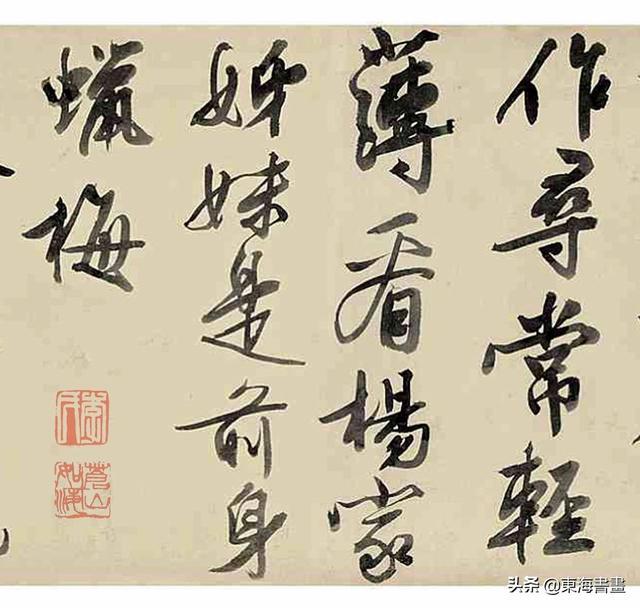 作尋常輕
薄看楊家
姊妹是前身
蠟梅
蒼山如海
头条 @東海書畫